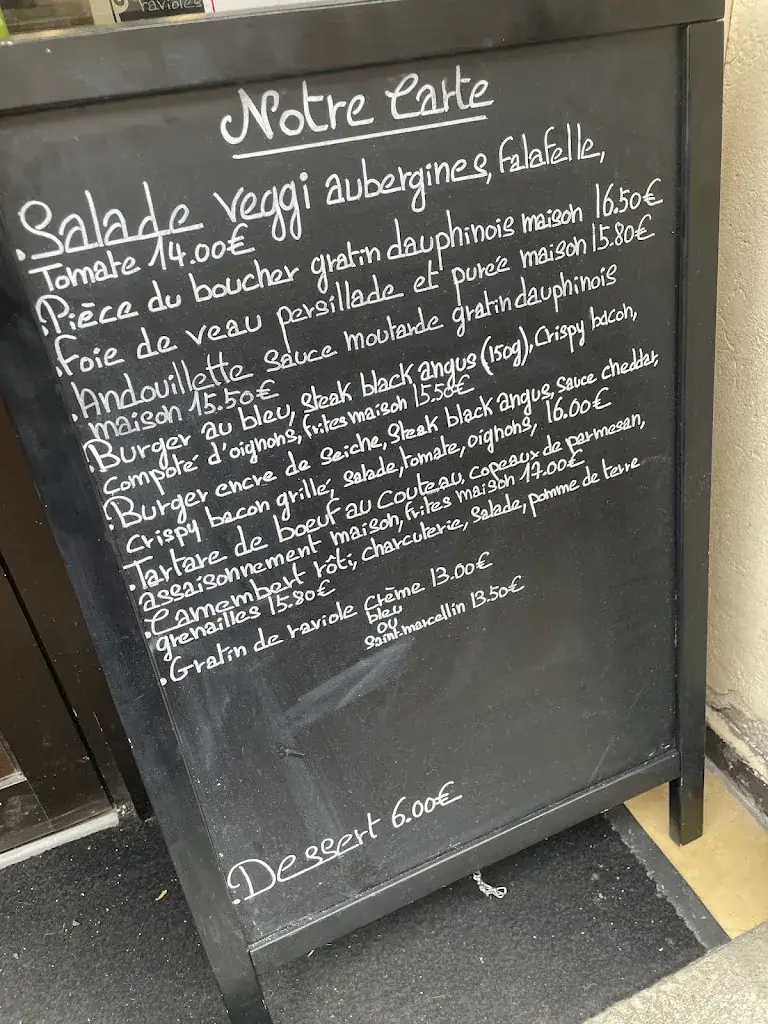 ravioles
Notre Carte
.Salade veggi aubergines, falafelle,
Tomate 14.00€
.Pièce du boucher gratin dauphinois maison 16.50€
.Foie de veau persillade et purée maison 15.80€
.Andouillette sauce moutarde gratin dauphinois
maison 15.50€
.Burger au bleu, steak black angus (150g), Crispy bacon,
compoté d'oignons, frites maison 15.50€
.Burger encre de Seiche, Steak black angus, sauce cheddar,
crispy bacon grillé, salade, tomate, oignons, 16.00€
.Tartare de boeuf au couteau, copeaux de parmesan,
assaisonnement maison, frites maison 17.00€
.Camembert rôti, charcuterie, salade, pomme de terre
grenailles 15.80€
.Gratin de raviole Crème 13.00€
bleu
ou
Saint-marcellin 13.50€
.Dessert 6.00€